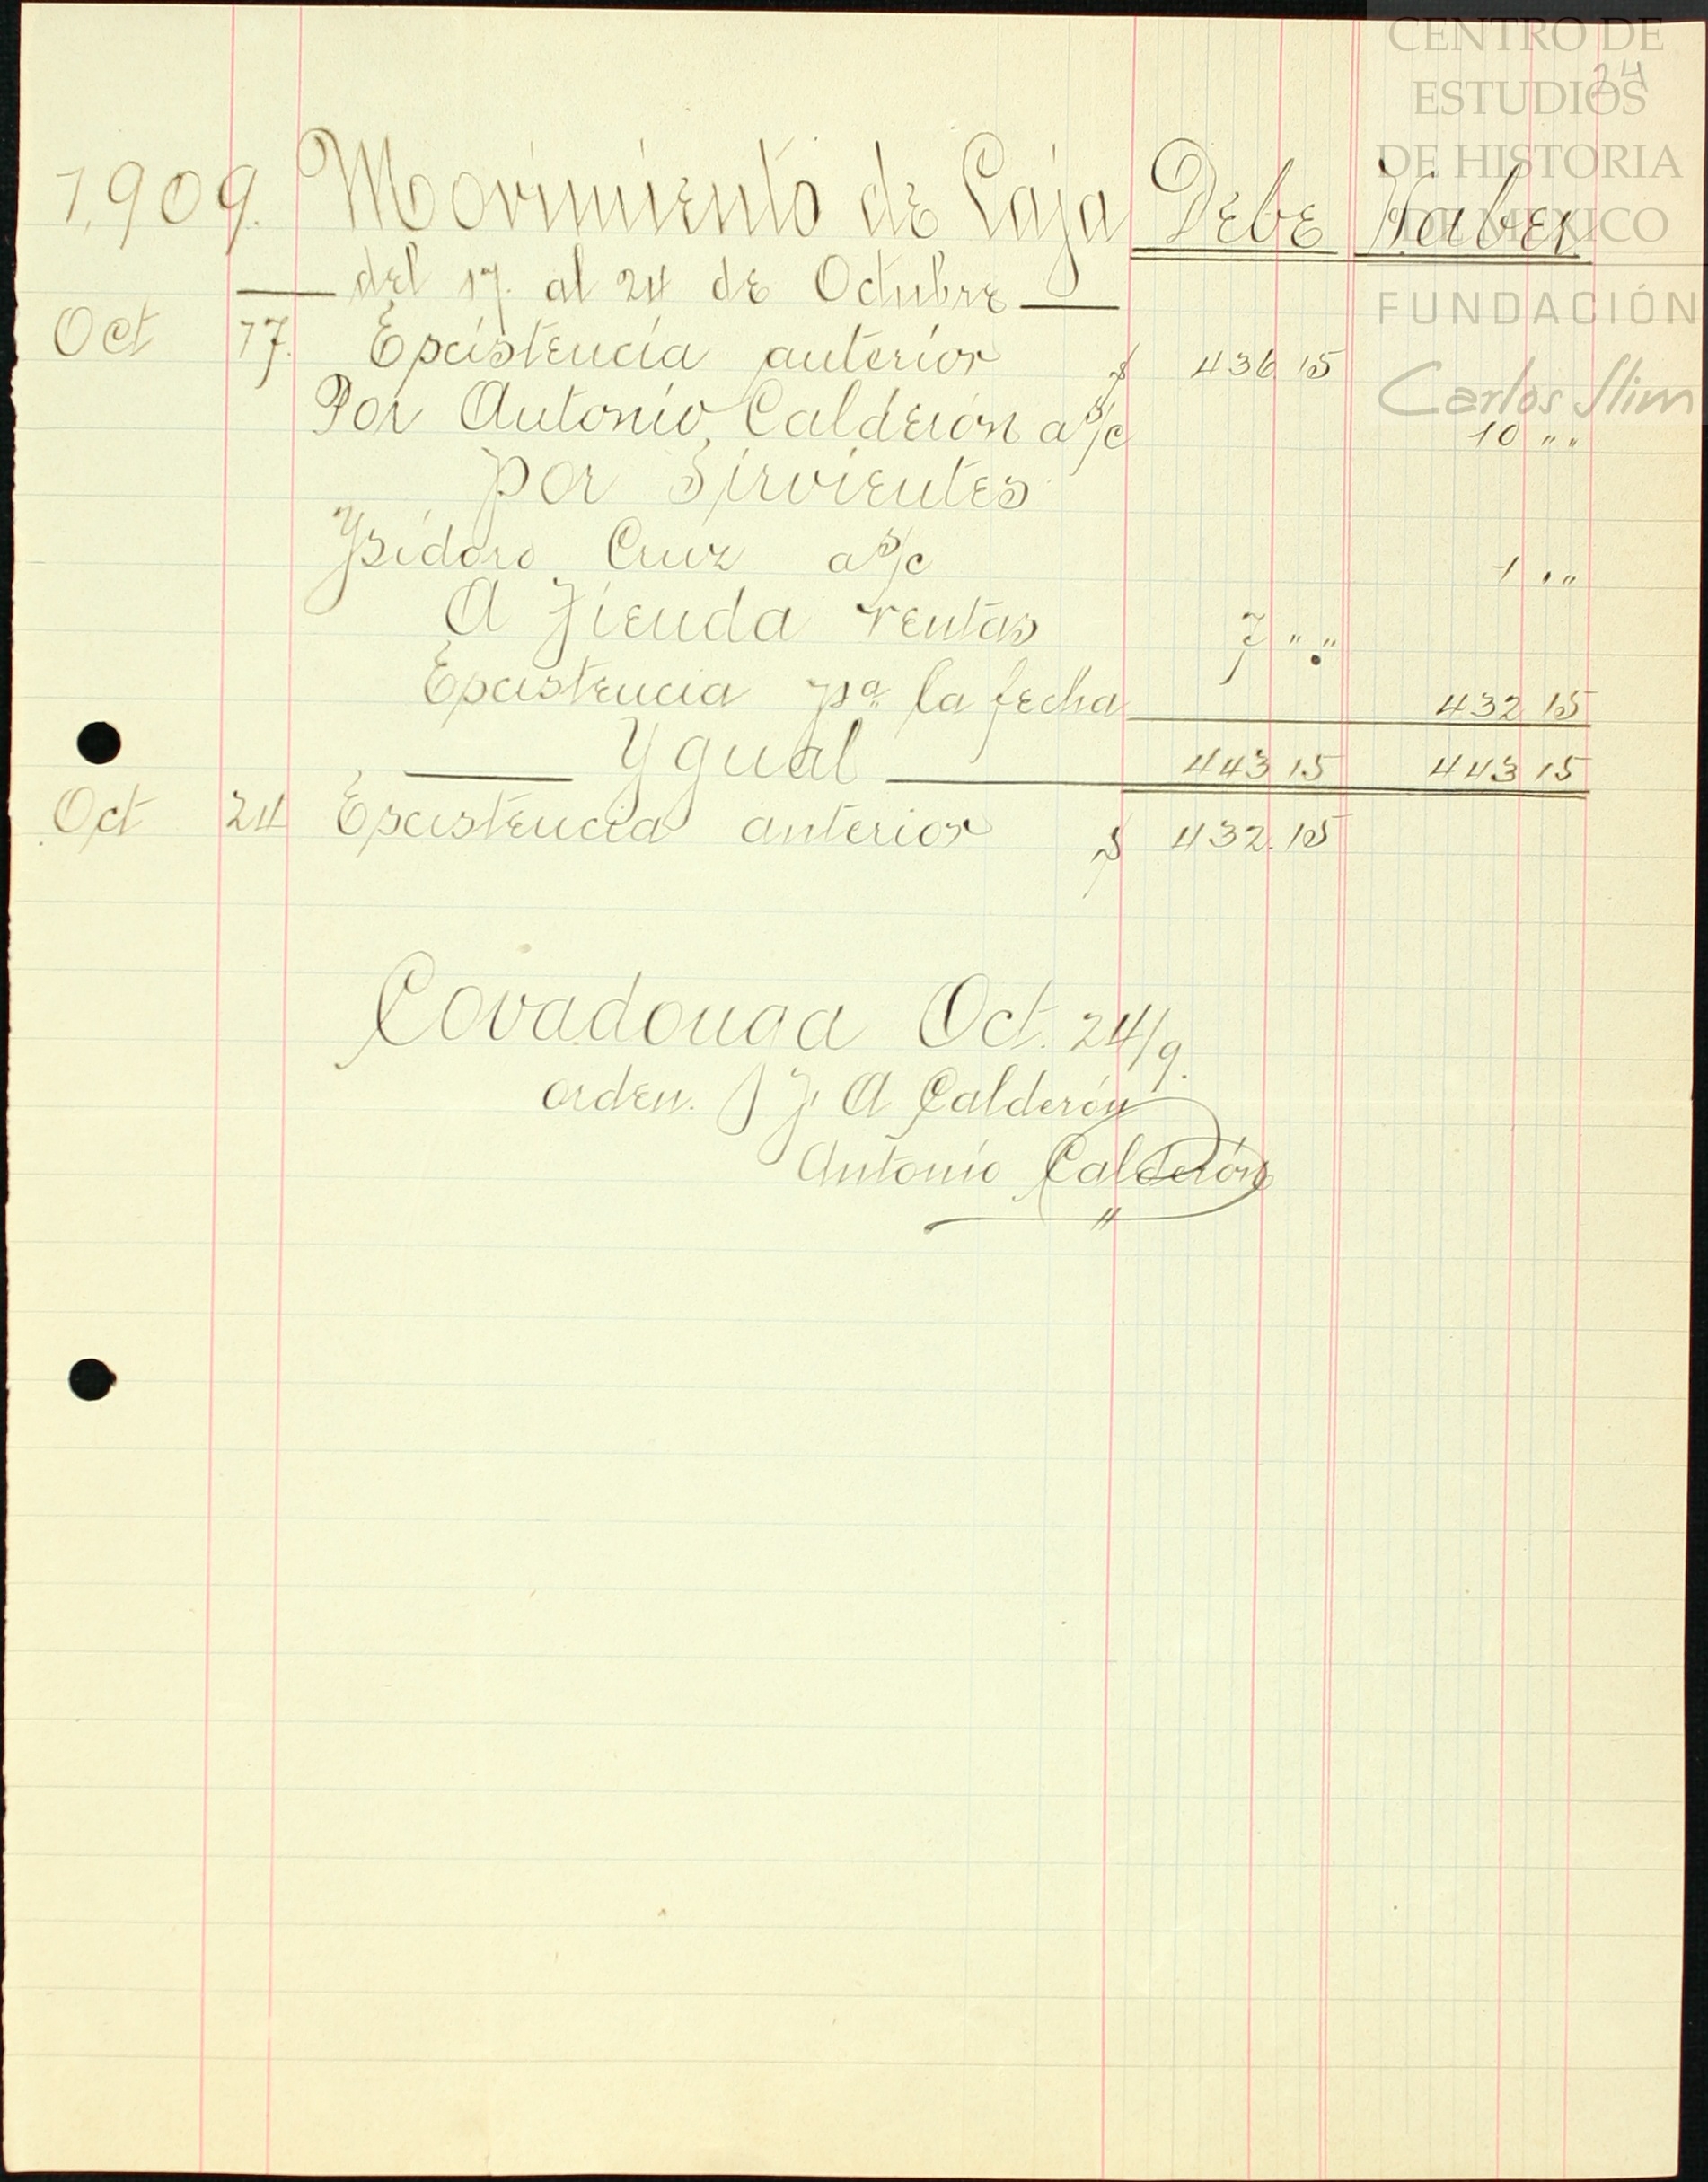 CENTRO DE
ESTUDIOS
DE HISTORIA
DE MEXICO
FUNDACIÓN
Carlos Slim
24
1,909. Movimiento de Caja Debe Haber
del 17. al 24 de Octubre
Oct 17. Existencia anterior $ 436 15
Por Antonio, Calderón a s/c 10 " "
por Sirvientes
Ysidoro Cruz a s/c 1 " "
A Tienda ventas 7 " "
Existencia pª la fecha 432 15
Ygual 443 15 443 15
Oct 24 Existencia anterior $ 432.15
Covadonga Oct. 24/9.
orden. J. A Calderón
Antonio Calderón